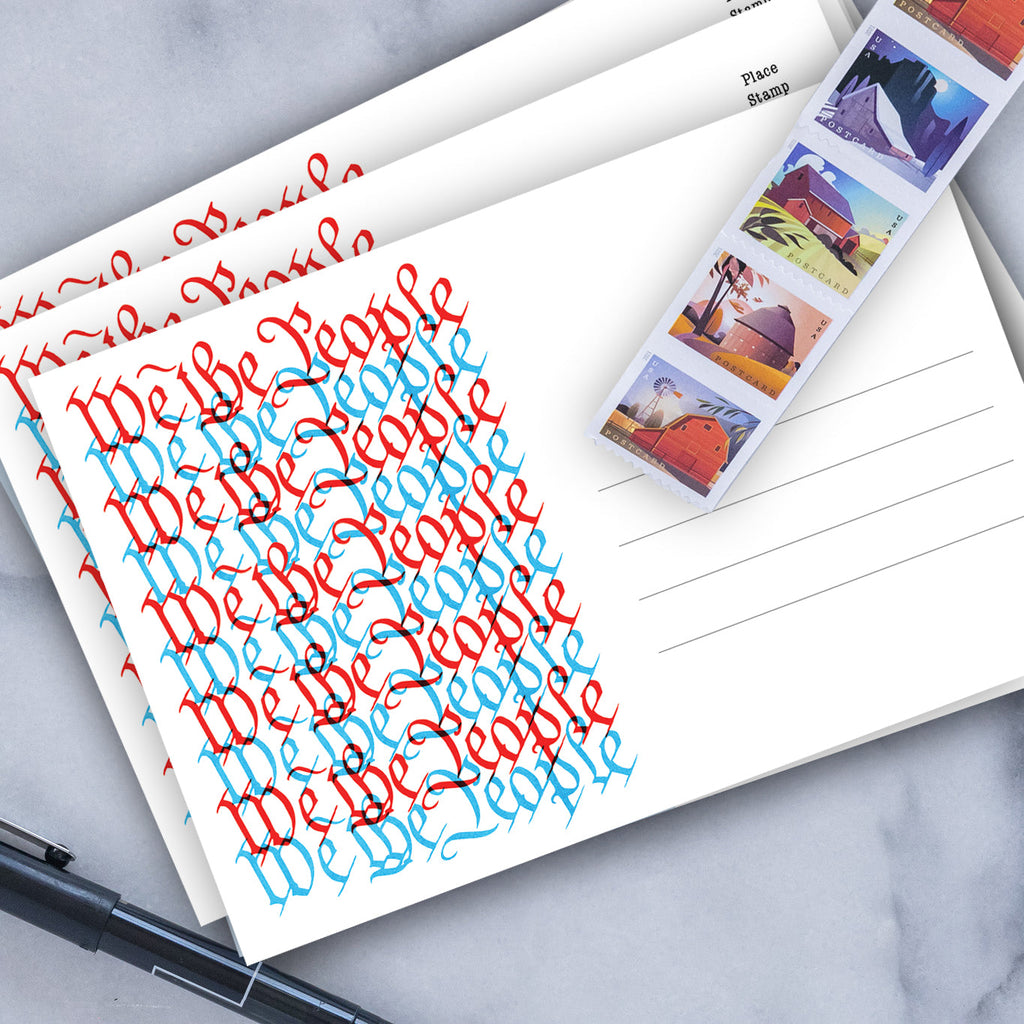 Stamp
Place
Stamp
We the People
We the People
We the People
We the People
We the People
We the People
We the People
We the People
We the People
We the People
We the People
We the People
POSTCARD
USA
POSTCARD
USA
POSTCARD
USA
POSTCARD
USA
POSTCARD